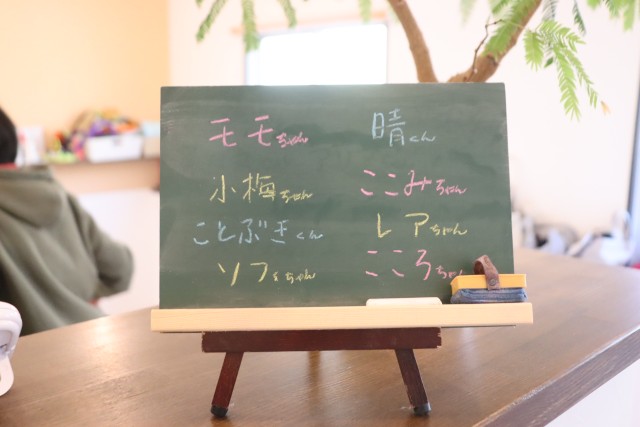 モモちゃん
小梅ちゃん
ことぶきくん
ソフィちゃん
晴くん
ここみちゃん
レアちゃん
こころちゃん